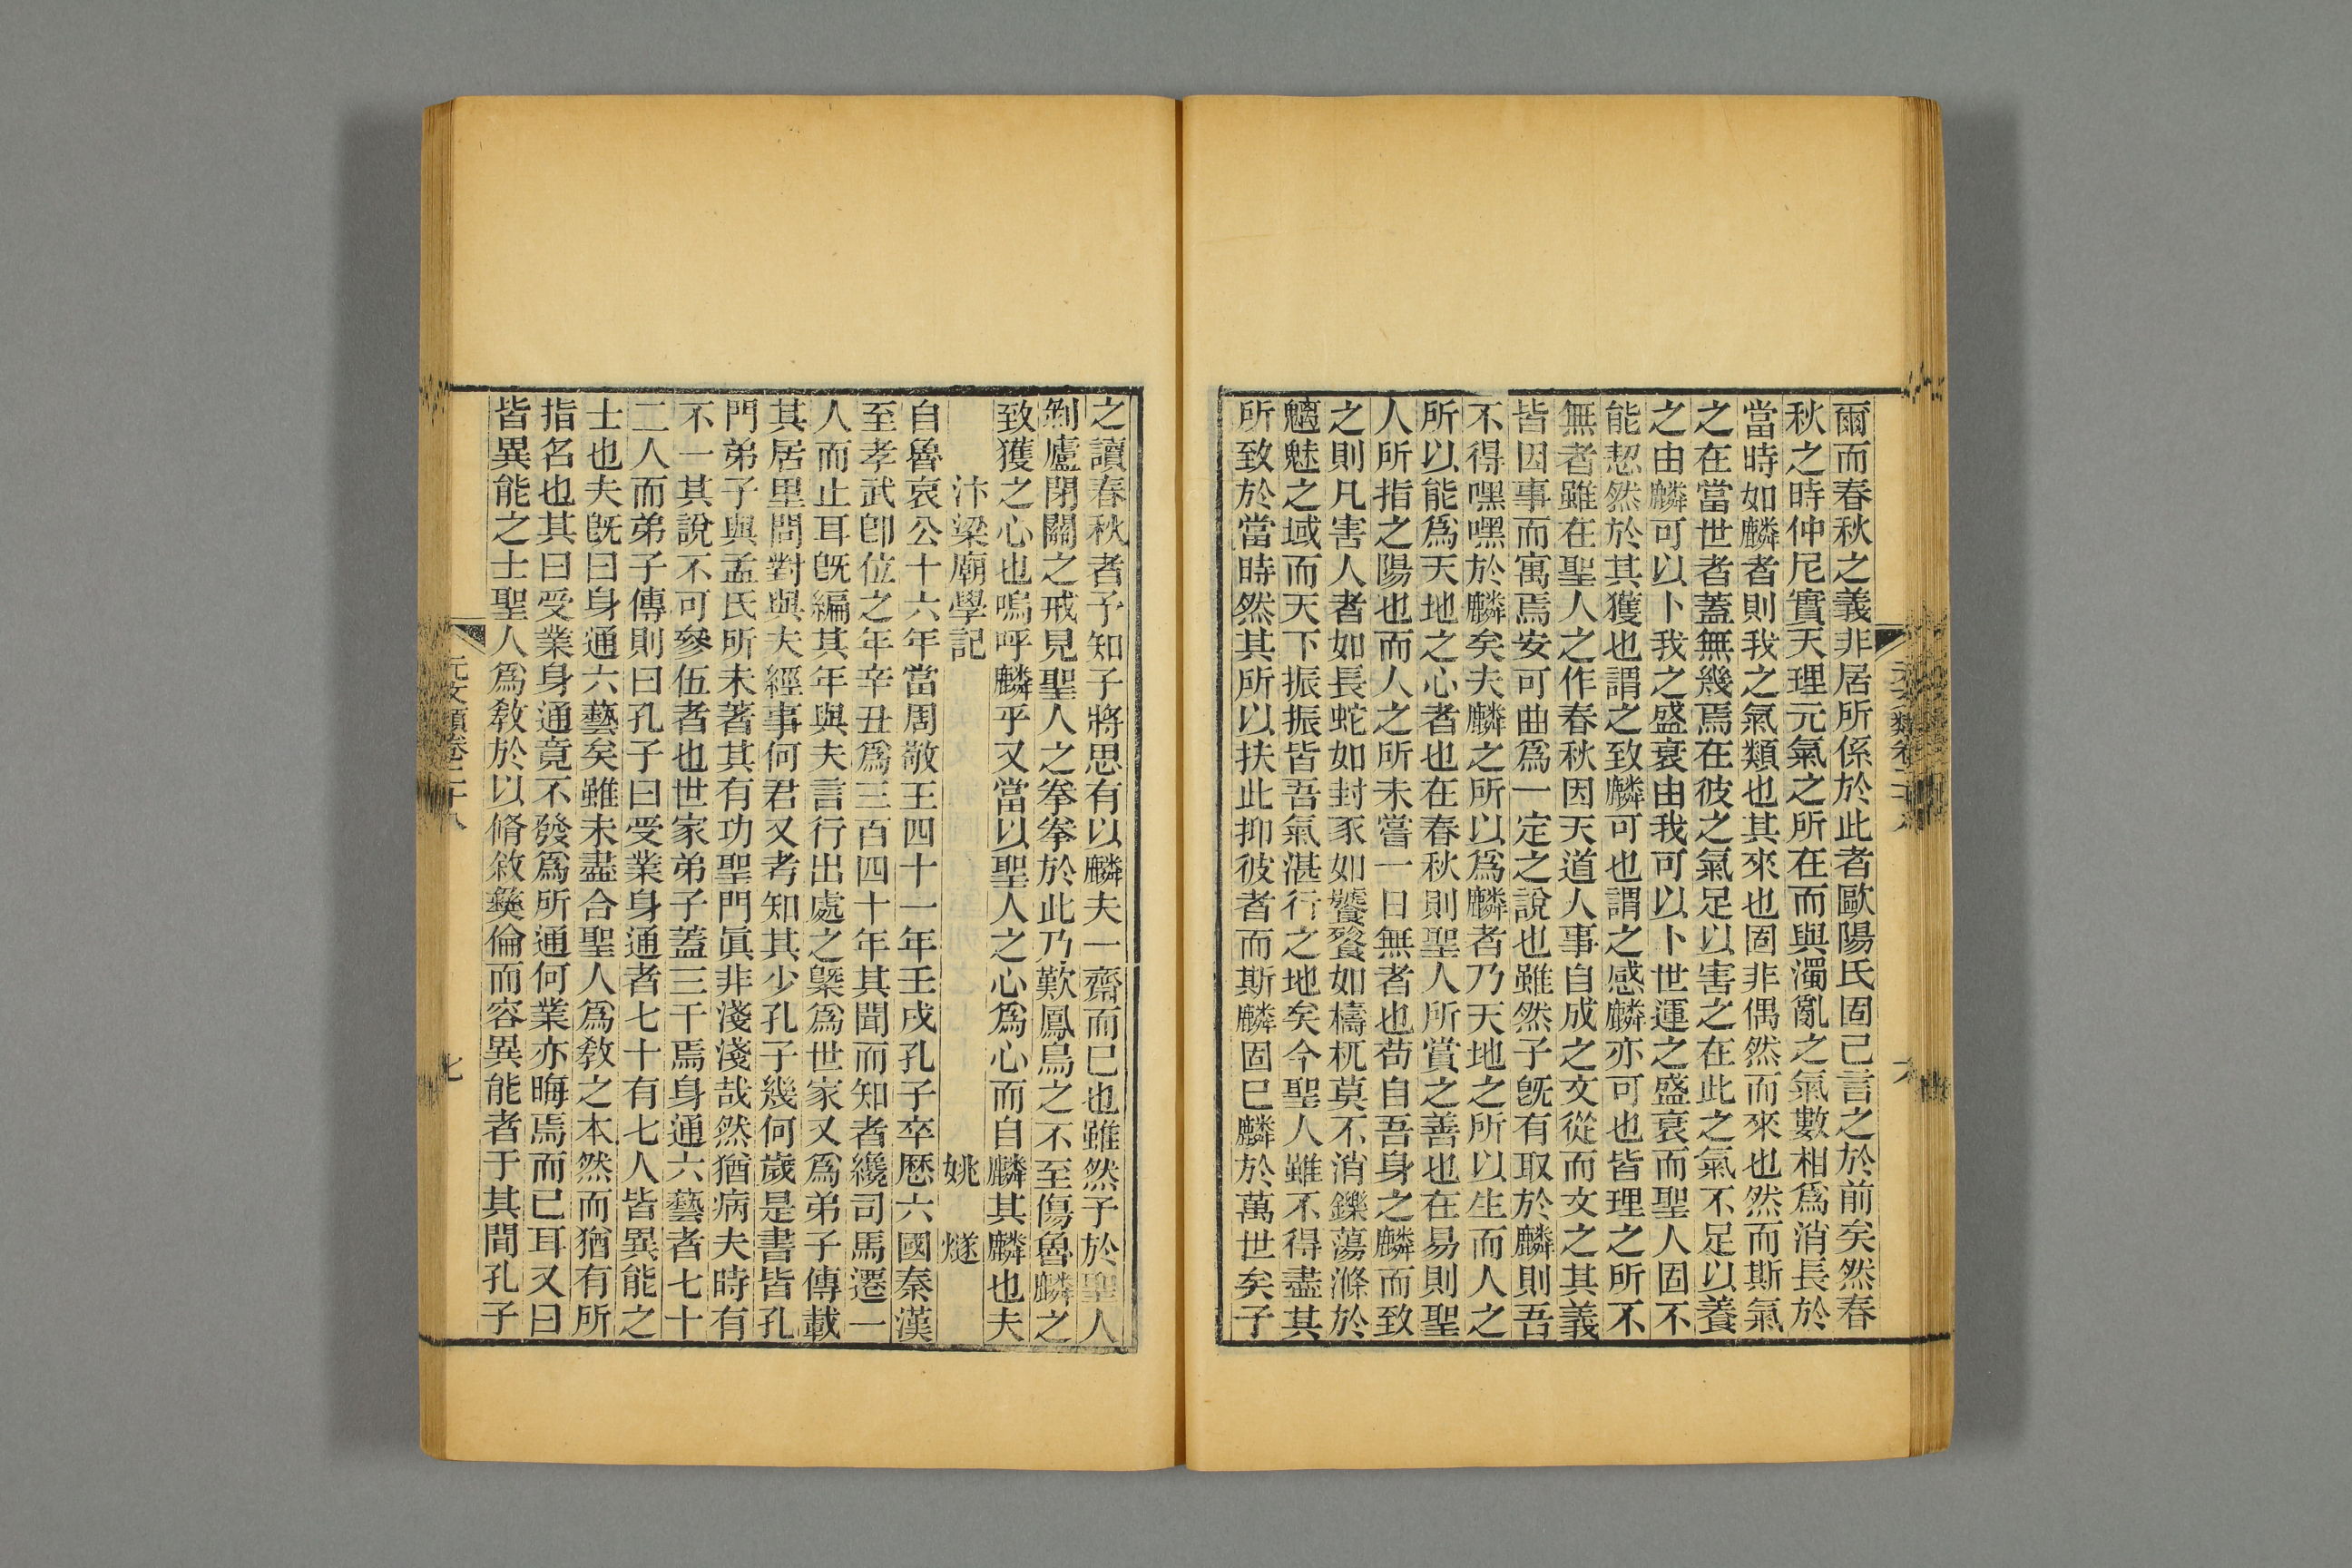 爾而春秋之義非居所係於此者歐陽氏固已言之於前矣然春
秋之時仲尼實天理元氣之所在而與濁亂之氣數相爲消長於
當時如麟者則我之氣類也其來也固非偶然而來也然而斯氣
之在當世者蓋無幾焉在彼之氣足以害之在此之氣不足以養
之由麟可以卜我之盛衰由我可以卜世運之盛衰而聖人固不
能恝然於其獲也謂之致麟可也謂之感麟亦可也皆理之所不
無者雖在聖人之作春秋因天道人事自成之文從而文之其義
皆因事而寓焉安可曲爲一定之說也雖然子旣有取於麟則吾
不得嘿嘿於麟矣夫麟之所以爲麟者乃天地之所以生而人之
所以能爲天地之心者也在春秋則聖人所賞之善也在易則聖
人所指之陽也而人之所未嘗一日無者也苟自吾身之麟而致
之則凡害人者如長蛇如封豕如饕餮如檮杌莫不消鑠蕩滌於
魑魅之域而天下振振皆吾氣湛行之地矣今聖人雖不得盡其
所致於當時然其所以扶此抑彼者而斯麟固已麟於萬世矣子
之讀春秋者予知子將思有以麟夫一齋而已也雖然子於聖人
剝廬閉關之戒見聖人之拳拳於此乃歎鳳鳥之不至傷魯麟之
致獲之心也嗚呼麟乎又當以聖人之心爲心而自麟其麟也夫
汴梁廟學記　姚　燧
自魯哀公十六年當周敬王四十一年壬戌孔子卒歷六國秦漢
至孝武卽位之年辛丑爲三百四十年其聞而知者纔司馬遷一
人而止耳旣編其年與夫言行出處之槩爲世家又爲弟子傳載
其居里問對與夫經事何君又考知其少孔子幾何歲是書皆孔
門弟子與孟氏所未著其有功聖門眞非淺淺哉然猶病夫時有
不一其說不可參伍者也世家弟子蓋三千焉身通六藝者七十
二人而弟子傳則曰孔子曰受業身通者七十有七人皆異能之
士也夫旣曰身通六藝矣雖未盡合聖人爲敎之本然而猶有所
指名也其曰受業身通竟不發爲所通何業亦晦焉而已耳又曰
皆異能之士聖人爲敎於以脩敘彝倫而容異能者于其間孔子
元文類卷二十八
七